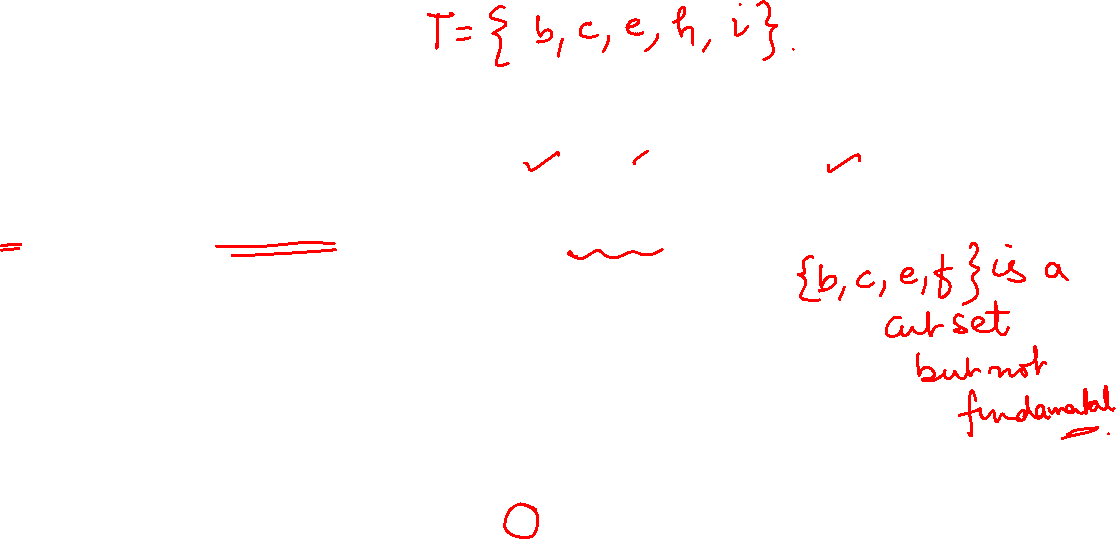 T = { b, c, e, h, i }.
{b, c, e, f } is a
cut set
but not
fundamatal.